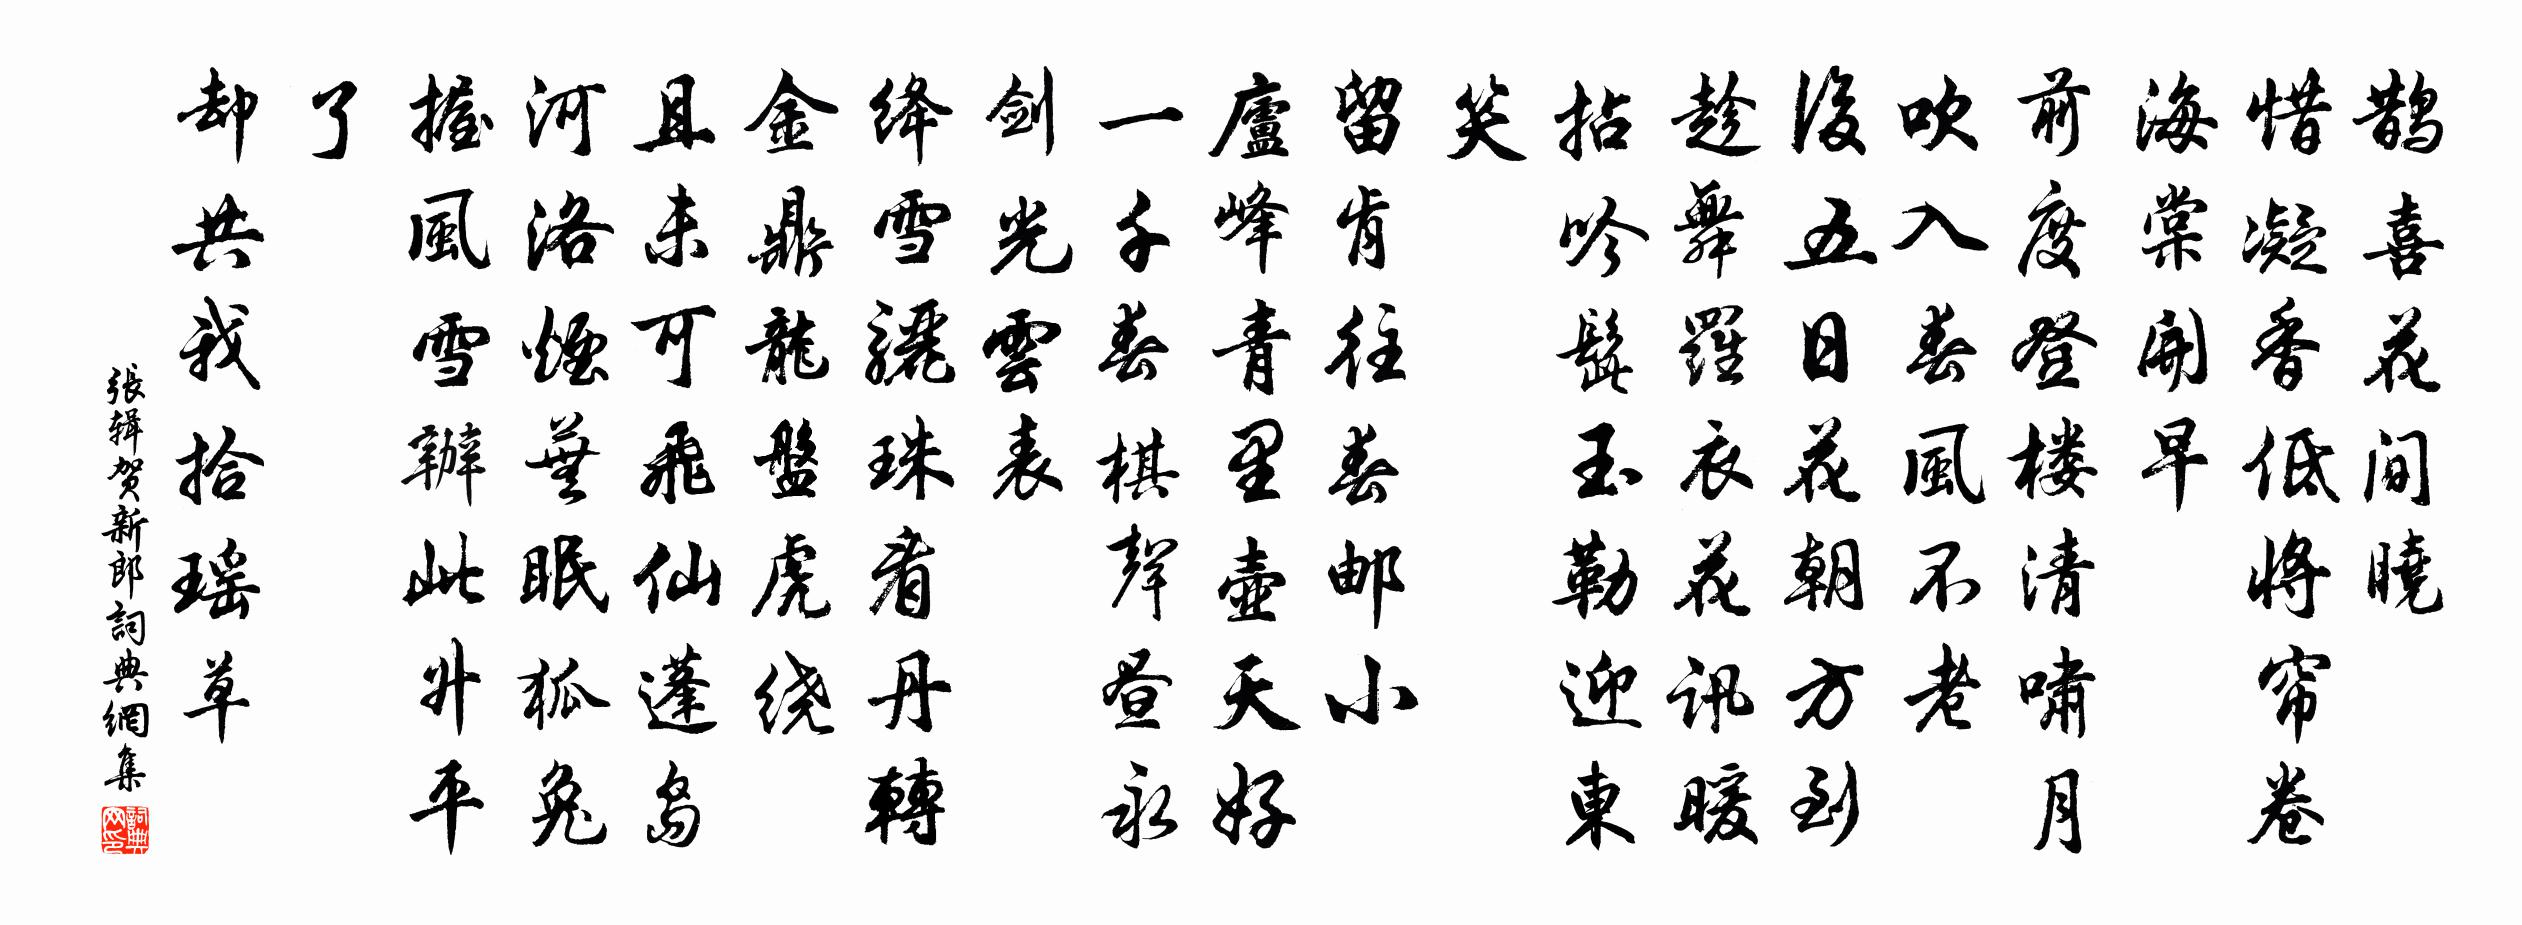 鹊喜花间曉
惜凝香低將帘卷
海棠開早
前度登楼清嘯月
吹入春風不老
後五日花朝方到
趁舞羅衣花讯暖
拈吟髭玉勒迎東
笑
留肯往春邮小
廬峰青里壺天好
一千春棋聲昼永
劍光雲表
絳雪驪珠看丹轉
金鼎龍盤虎绕
且未可飛仙蓬島
河洛煙蕪眠狐兔
握風雪辦此升平
了
却共我拾瑶草
張辑贺新郎詞典網集